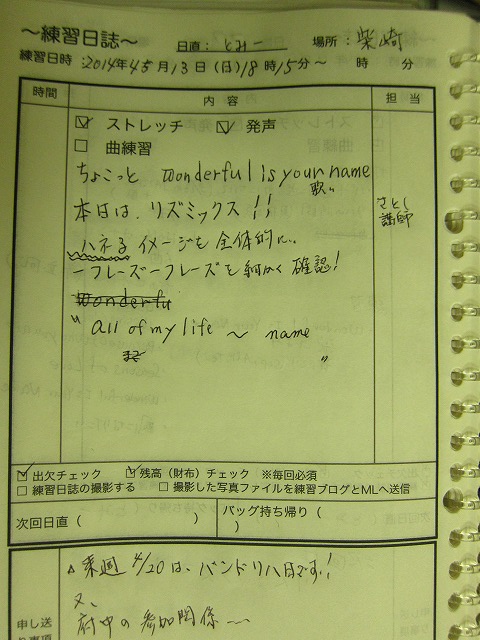 ～練習日誌～ 日直：とみー 場所：柴崎
練習日時：2014年4月13日（日）18時15分～ 時 分
時間 内容 担当
☑ ストレッチ ☑ 発声
☐ 曲練習
ちょこっと Wonderful is your name
歌い
本日は、リズミックス!!
さとし
講師
ハネる イメージを 全体的に..
一フレーズ一フレーズを細かく確認!
Wonderfu
"all of my life ～ name"
まで
☑ 出欠チェック ☑ 残高（財布）チェック ※毎回必須
☐ 練習日誌の撮影する ☐ 撮影した写真ファイルを練習ブログとMLへ送信
次回日直（ ） バッグ持ち帰り（ ）
申し送
り事項
△来週 4/20は、バンドリハ日です!!
又、
府中の参加関係～